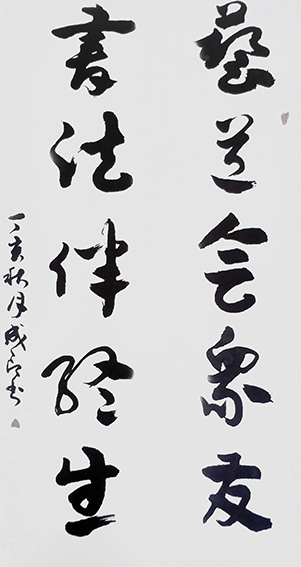 藝道会衆友
書法伴終生
丁亥秋月成之书